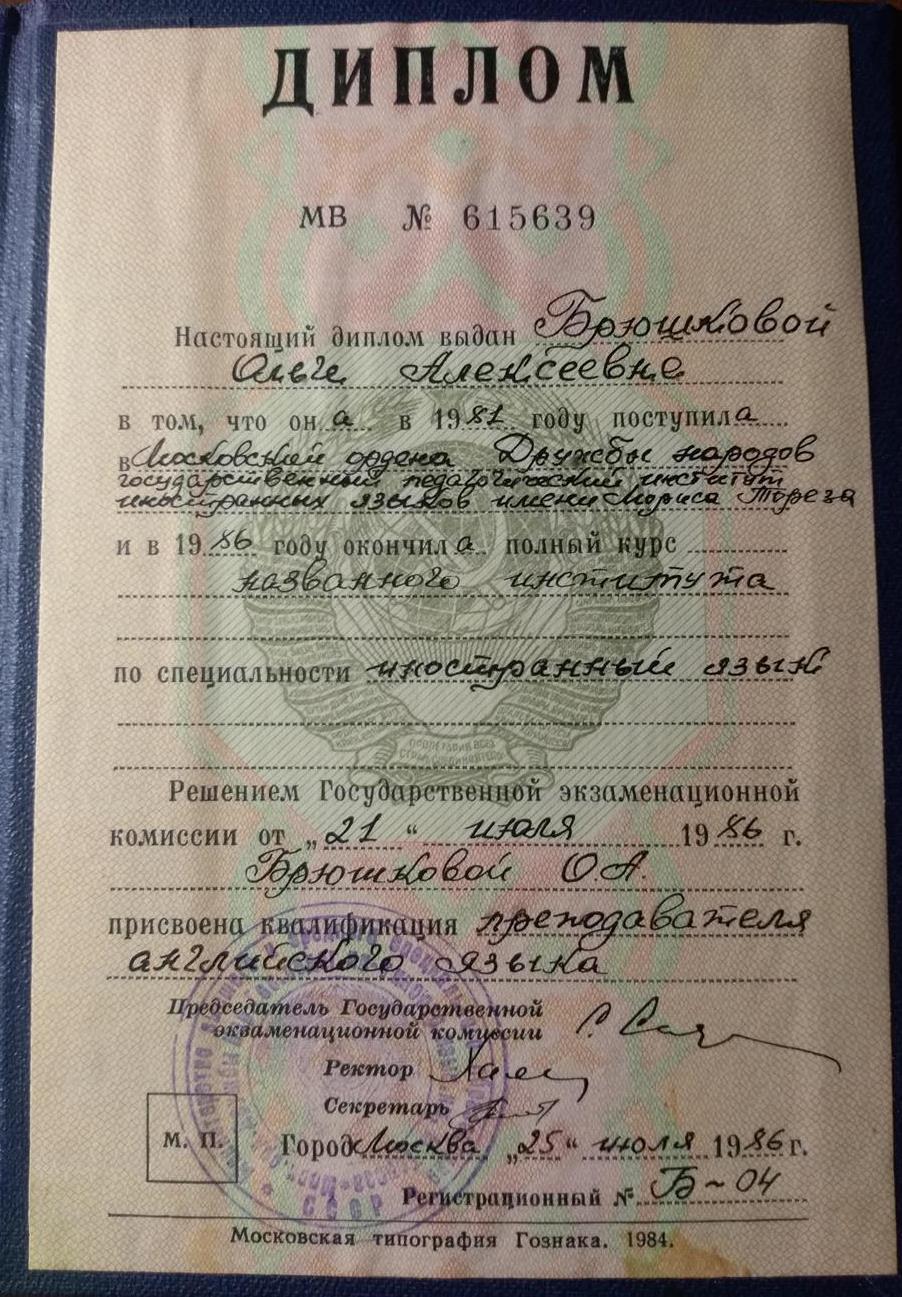 ДИПЛОМ
МВ № 615639
Настоящий диплом выдан Брюшковой
Ольге Алексеевне
в том, что он а в 1981 году поступила
в Московский ордена Дружбы народов
государственный педагогический институт
иностранных языков имени Мориса Тореза
и в 1986 году окончила полный курс
названного института
по специальности иностранный язык
Решением Государственной экзаменационной
комиссии от „21“ июля 1986 г.
Брюшковой О.А.
присвоена квалификация преподавателя
английского языка
Председатель Государственной
экзаменационной комиссии
Ректор
Секретарь
М. П.
Город Москва „25“ июля 1986 г.
Регистрационный № Б-04
СССР
Московская типография Гознака. 1984.